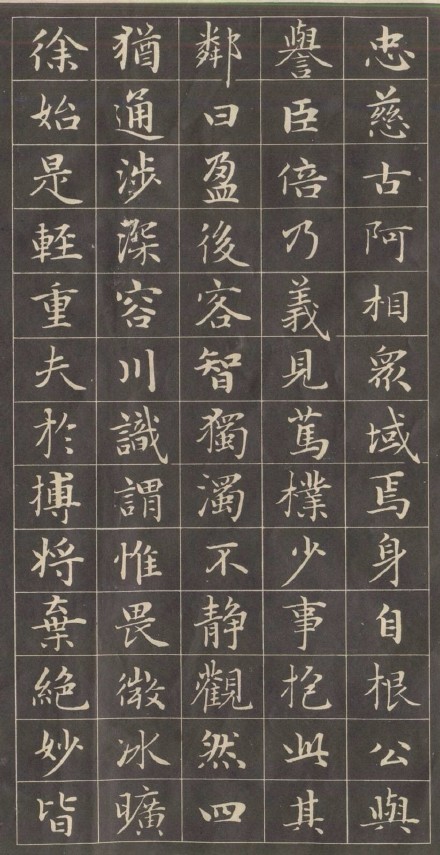 忠慈古阿相眾域焉身自根公與
譽臣倍乃義見篤樸少事抱此其
鄰曰盈後客智獨濁不静觀然四
猶通涉深容川識謂惟畏微冰曠
徐始是輕重夫於搏将棄絕妙皆